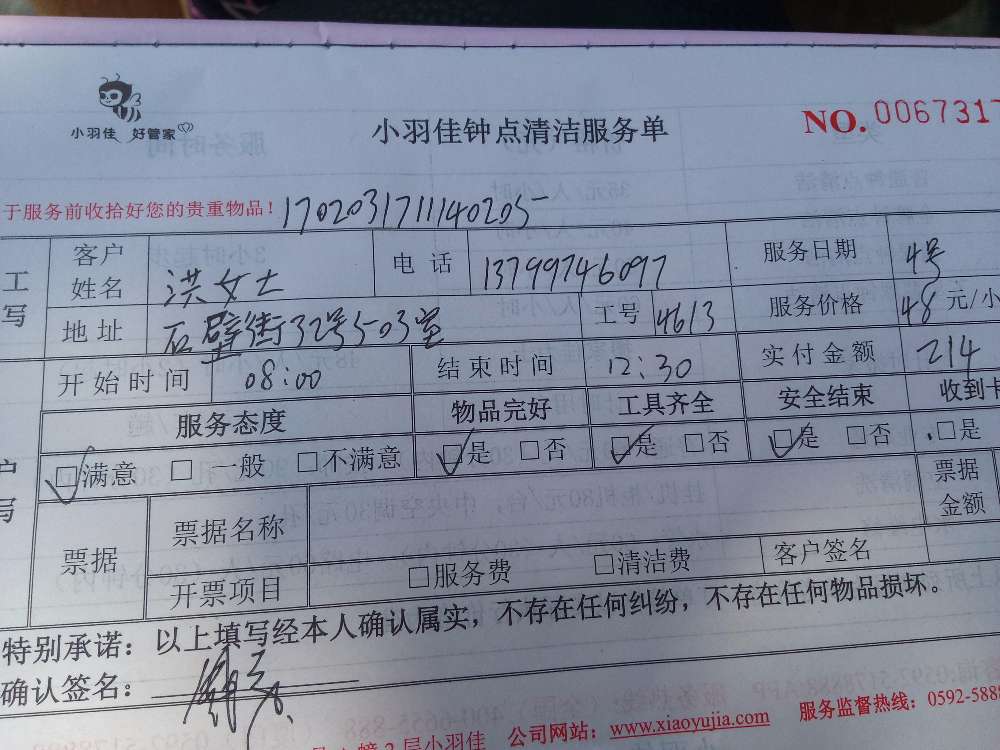 小羽佳 好管家
小羽佳钟点清洁服务单
NO. 0067317
于服务前收拾好您的贵重物品! 1702031711140205
工 客户姓名 洪女士 电话 13799746097 服务日期 4号
写 地址 石壁街32号503室 工号 4613 服务价格 48 元/小
开始时间 08:00 结束时间 12:30 实付金额 214
服务态度 物品完好 工具齐全 安全结束 收到卡
户 ☑满意 □一般 □不满意 ☑是 □否 ☑是 □否 ☑是 □否 □是
写 票据 票据名称 票据金额
开票项目 □服务费 □清洁费 客户签名
特别承诺:以上填写经本人确认属实,不存在任何纠纷,不存在任何物品损坏。
确认签名:
2层小羽佳 公司网站:www.xiaoyujia.com 服务监督热线:0592-5888